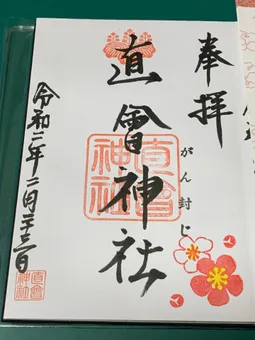 奉拝
直會神社
がん封じ
令和二年二月二十三日
直會
神社
直會
神社